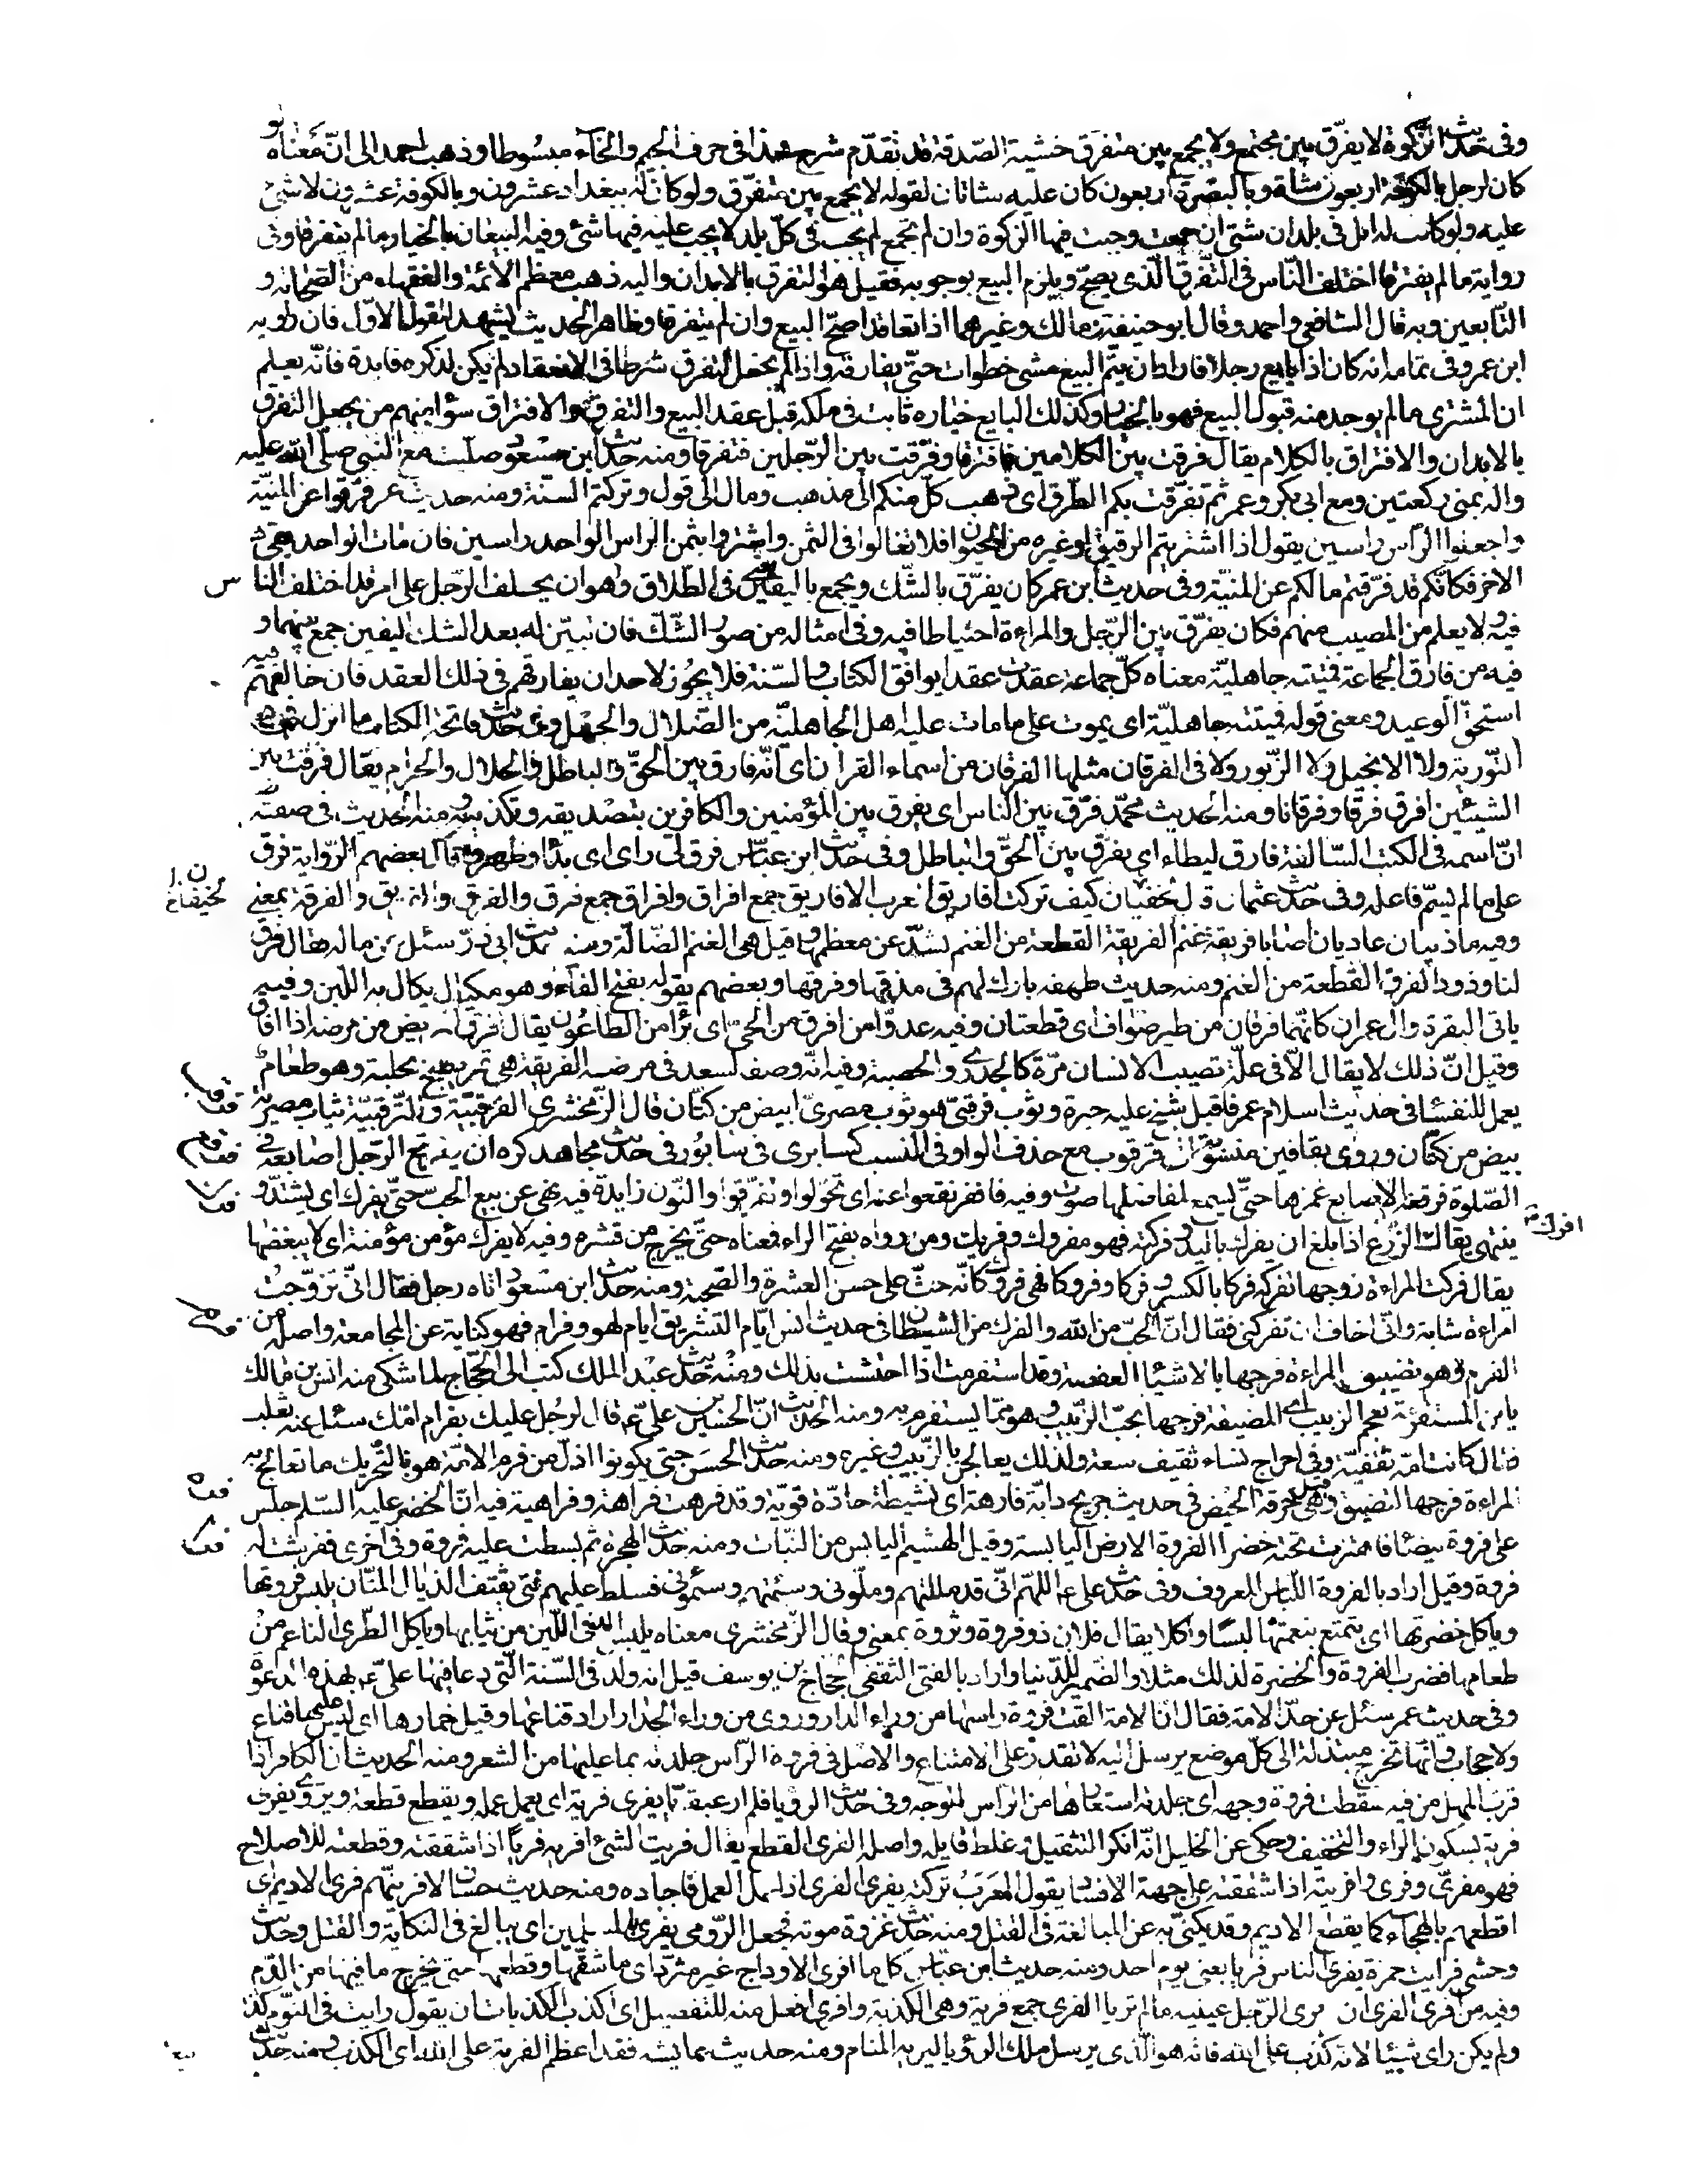 وفى حديث الزكوة لا يفرّق بين مجتمع ولا يجمع بين متفرّق خشية الصّدقة قد تقدّم شرح هذا فى حرف الجيم والخآء مبسُوطا وذهب احمد الى انّ معناه لو
كان لرجل بالكوفة اربعون شاة وبالبصرة اربعون كان عليه شاتان لقوله لا يجمع بين متفرّق ولو كان له ببغداد عشرون وبالكوفة عشرون لا شئ
عليه ولو كانت له ابل فى بلدان شتى ان جمعت وجبت فيها الزكوة وان لم تجمع لم يجب فى كلّ بلد لا يجب عليه فيها شئ وفيه البيعان بالخيار ما لم يتفرقا وفى
رواية ما لم يفترقا اختلف النّاس فى التّفرق الّذى يصحّ ويلزم البيع بوجوبه فقيل هو التفرق بالابدان واليه ذهب معظم الائمة والفقهاء من الصّحابة و
التّابعين وبه قال الشافعى واحمد وقال ابو حنيفة ومالك وغيرهما اذا تعاقدا صحّ البيع وان لم يتفرقا وظاهر الحديث يشهد للقول الاوّل فان راويه
ابن عمر وفى تمامه انه كان اذا بايع رجلا فاراد ان يتمّ البيع مشى خطوات حتّى يفارقه واذا لم يجعل التفرق شرطا فى الانعقاد لم يكن لذكره فايدة فانّه يعلم
ان المشترى ما لم يوجد منه قبول البيع فهو بالخيار وكذلك البايع خياره ثابت فى ملكه قبل عقد البيع والتفرق والافتراق سوآ ومنهم من يجعل التفرق
بالابدان والافتراق بالكلام يقال فرقت بين الكلامين فافترقا وفرّقت بين الرّجلين فتفرقا ومنه حديث ابن مسعود صلّيت مع النّبى صلّى اللّه عليه
واله بمنى ركعتين ومع ابى بكر وعمر ثم تفرّقت بكم الطّرق اى ذهب كلّ منكم الى مذهب ومال الى قول وتركتم السنّة ومنه حديث عمر فرّقوا عن المنيّة
واجعلوا الرّأس راسين يقول اذا اشتريتم الرقيق او غيره من الحيوان فلا تغالوا فى الثمن واشتروا بثمن الراس الواحد راسين فان مات الواحد بقى
الاخر فكانّكم قد فرّقتم مالكم عن المنيّة وفى حديث ابن عمر كان يفرّق بالشّك ويجمع باليقين فى الطّلاق وهو ان يحلف الرّجل على امر قد اختلف الناس
فيه ولا يعلم من المصيب منهم فكان يفرّق بين الرّجل والمراءة احتياطا فيه وفى امثاله من صور الشّك فان تبيّن له بعد الشك اليقين جمع بينهما و
فيه من فارق الجماعة فميتته جاهليّة معناه كلّ جماعة عقدت عقدا يوافق الكتاب والسّنة فلا يجوز لاحد ان يفارقهم فى ذلك العقد فان خالفهم فيه
استحقّ الوعيد ومعنى قوله فميتته جاهليّة اى يموت على ما مات عليه اهل الجاهليّة من الضّلال والجهل وفى حديث فاتحة الكتاب ما انزل فى
التّورية ولا الانجيل ولا الزّبور ولا فى الفرقان مثلها الفرقان من اسماء القران اى انّه فارق بين الحقّ والباطل والحلال والحرام يقال فرقت بين
الشيئين افرق فرقا وفرقانا ومنه الحديث محمّد فرّق بين الناس اى يفرق بين المؤمنين والكافرين بتصديقه وتكذيبه ومنه الحديث فى صفته
انّ اسمه فى الكتب السّالفة فارق ليطاء اى يفرّق بين الحقّ والباطل وفى حديث ابن عبّاس فرق لى راى اى بدا وظهر وقال بعضهم الرّواية فرق
على ما لم يسمّ فاعله وفى حديث عثمان قال لخفيان كيف تركت افاريق العرب الافاريق جمع افراق وافراق جمع فرق والفرق والفريق والفرقة بمعنى
وفيه ما ذئبان عاديان اصابا فريقة غنم الفريقة القطعة من الغنم تشذّ عن معظمها وقيل هى الغنم الضّالّة ومنه حديث ابى ذرّ سئل عن ماله فقال فرق
لنا وذود الفرق القطعة من الغنم ومنه حديث طهفه بارك لهم فى مذقها وفرقها وبعضهم يقوله بفتح الفآء وهو مكيال يكال به اللّبن وفيه
ياتى البقرة وال عمران كانّهما فرقان من طير صوّاف اى قطعتان وفيه عدوّا من افرق من الحمّى اى برأ من الطاعون يقال افرق المريض من مرضه اذا افاق
وقيل انّ ذلك لا يقال الّا فى علّة تصيب الانسان مرّة كالجدرى والحصبة وفيه انّه وصف لسعد فى مرضه الفريقة هى تمر يطبخ بحلبة وهو طعام
يعمل للنفساء فى حديث اسلام عمر فاقبل شيخ عليه حبرة وثوب فرقبىّ هو ثوب مصرىّ ابيض من كتّان قال الزّمخشرى الفرقبيّة والثّرقبيّة ثياب مصريّة
بيض من كتّان وروى بقافين منسوب الى قرقوب مع حذف الواو فى النسب كسابرى فى سابور فى حديث مجاهد كره ان يفرقع الرّجل اصابعه فى
الصّلوة فرقعة الاصابع غمزها حتّى يسمع لمفاصلها صوت وفيه فافرنقعوا عنه اى تحوّلوا وتفرّقوا والنّون زايدة فيه نهى عن بيع الحبّ حتّى يفرك اى يشتدّ و
ينتهى يقال افرك الزّرع اذا بلغ ان يفرك باليد وفركته فهو مفروك وفريك ومن رواه بفتح الراء فمعناه حتّى يخرج من قشره وفيه لا يفرك مؤمن مؤمنة اى لا يبغضها
يقال فركت المراءة زوجها تفركه فركا بالكسر وفركا وفروكا فهى فروك كانّه حثّ على حسن العشرة والصّحبة ومنه حديث ابن مسعود اتاه رجل فقال انّى تزوّجت
امراءة شابة وانّى اخاف ان تفركنى فقال انّ الحبّ من اللّه والفرك من الشيطان فى حديث انس ايّام التشريق ايام لهو وفرام فهو كناية عن المجامعة واصله من
الفرم وهو تضييق المراءة فرجها بالاشياء العفصة وقد استفرمت اذا احتشت بذلك ومنه حديث عبد الملك كتب الى الحجّاج لما شكى منه انس بن مالك
يا ابن المستفرمة بعجم الزبيب اى المضيقة فرجها بحبّ الزّبيب وهو ممّا يستفرم به ومنه الحديث انّ الحسين بن علىّ ع قال لرجل عليك بفرام امّك سئل عنه ثعلب
فقال كانت امّه ثقفيّة وفى احراج نساء ثقيف سعة ولذلك يعالجن بالزّبيب وغيره ومنه حديث الحسن حتى يكونوا اذلّ من فرم الامّة هو بالتّحريك ما تعالج به
المراءة فرجها لتضيق وقيل هى خرقة الحيض فى حديث جريج دابّة فارهة اى نشيطة حادّة قويّة وقد فرهت فراهة وفراهية فيه انّ الخضر عليه السّلم جلس
على فروة بيضاء فاهتزت تحته خضراء الفروة الارض اليابسة وقيل الهشيم اليابس من النّبات ومنه حديث الهجرة ثم بسطت عليه فروة وفى اخرى ففرشت له
فروة وقيل اراد بالفروة اللّباس المعروف وفى حديث على ع اللّهم انّى قد مللتهم وملّونى وسئمتهم وسئمونى فسلط عليهم فتى ثقيف الذيال المنّان يلبس فروتها
وياكل خضرتها اى يتمتع بنعمتها لبسا واكلا يقال فلان ذو فروة وثروة بمعنى وقال الزّمخشرى معناه يلبس الدفى اللّين من ثيابها وياكل الطّرى الناعم من
طعامها فضرب الفروة والخضرة لذلك مثلا والضّمير للدّنيا واراد بالفتى الثقفى الحجّاج بن يوسف قيل انه ولد فى السّنة الّتى دعا فيها علىّ ع بهذه الدعوة
وفى حديث عمر سئل عن حدّ الامة فقال انّ الامة القت فروة راسها من وراء الدار وروى من وراء الجدار اراد قناعها وقيل خمارها اى ليس عليها قناع
ولا حجاب وانّها تخرج مبتذلة الى كلّ موضع يرسل اليه لا تقدر على الامتناع والاصل فى فروة الرّاس جلدته بما عليها من الشعر ومنه الحديث انّ الكافر اذا
قرب المهل من فيه سقطت فروة وجهه اى جلدته استعارها من الرّاس للوجه وفى حديث الرؤيا فلم ار عبقريّا يفرى فريّه اى يعمل عمله ويقطع قطعه ويروى يفرى
فريه بسكون الراء والتخفيف وحكى عن الخليل انّه انكر التثقيل وغلط قايله واصل الفرى القطع يقال فريت الشئ افريه فريّا اذا شققته وقطعته للاصلاح
فهو مفرىّ وفرى وافريته اذا شققته على جهة الافساد يقول العرب تركته يفرى الفرى اذا عمل العمل فاجاده ومنه حديث حسان لافرينّهم فرى الاديم اى
اقطعهم بالهجآء كما يقطع الاديم وقد يكنّى به عن المبالغة فى القتل ومنه حديث غزوة موتة فجعل الرّومى يفرى بالمسلمين اى يبالغ فى النكاية والقتل وحديث
وحشى فرايت حمزة يفرى الناس فريا يعنى يوم احد ومنه حديث ابن عبّاس كل ما افرى الاوداج غير مثرّد اى ما شقّها وقطعها حتى يخرج ما فيها من الدّم
وفيه من افرى الفرى ان يرى الرّجل عينيه ما لم تريا الفرى جمع فرية وهى الكذبة وافرى افعل منه للتفضيل اى اكذب الكذبات ان يقول رايت فى النّوم كذا
ولم يكن راى شيئا لانه كذب على اللّه فانه هو الّذى يرسل ملك الرؤيا ليريه المنام ومنه حديث عايشه فقد اعظم الفرية على اللّه اى الكذب ومنه حديث